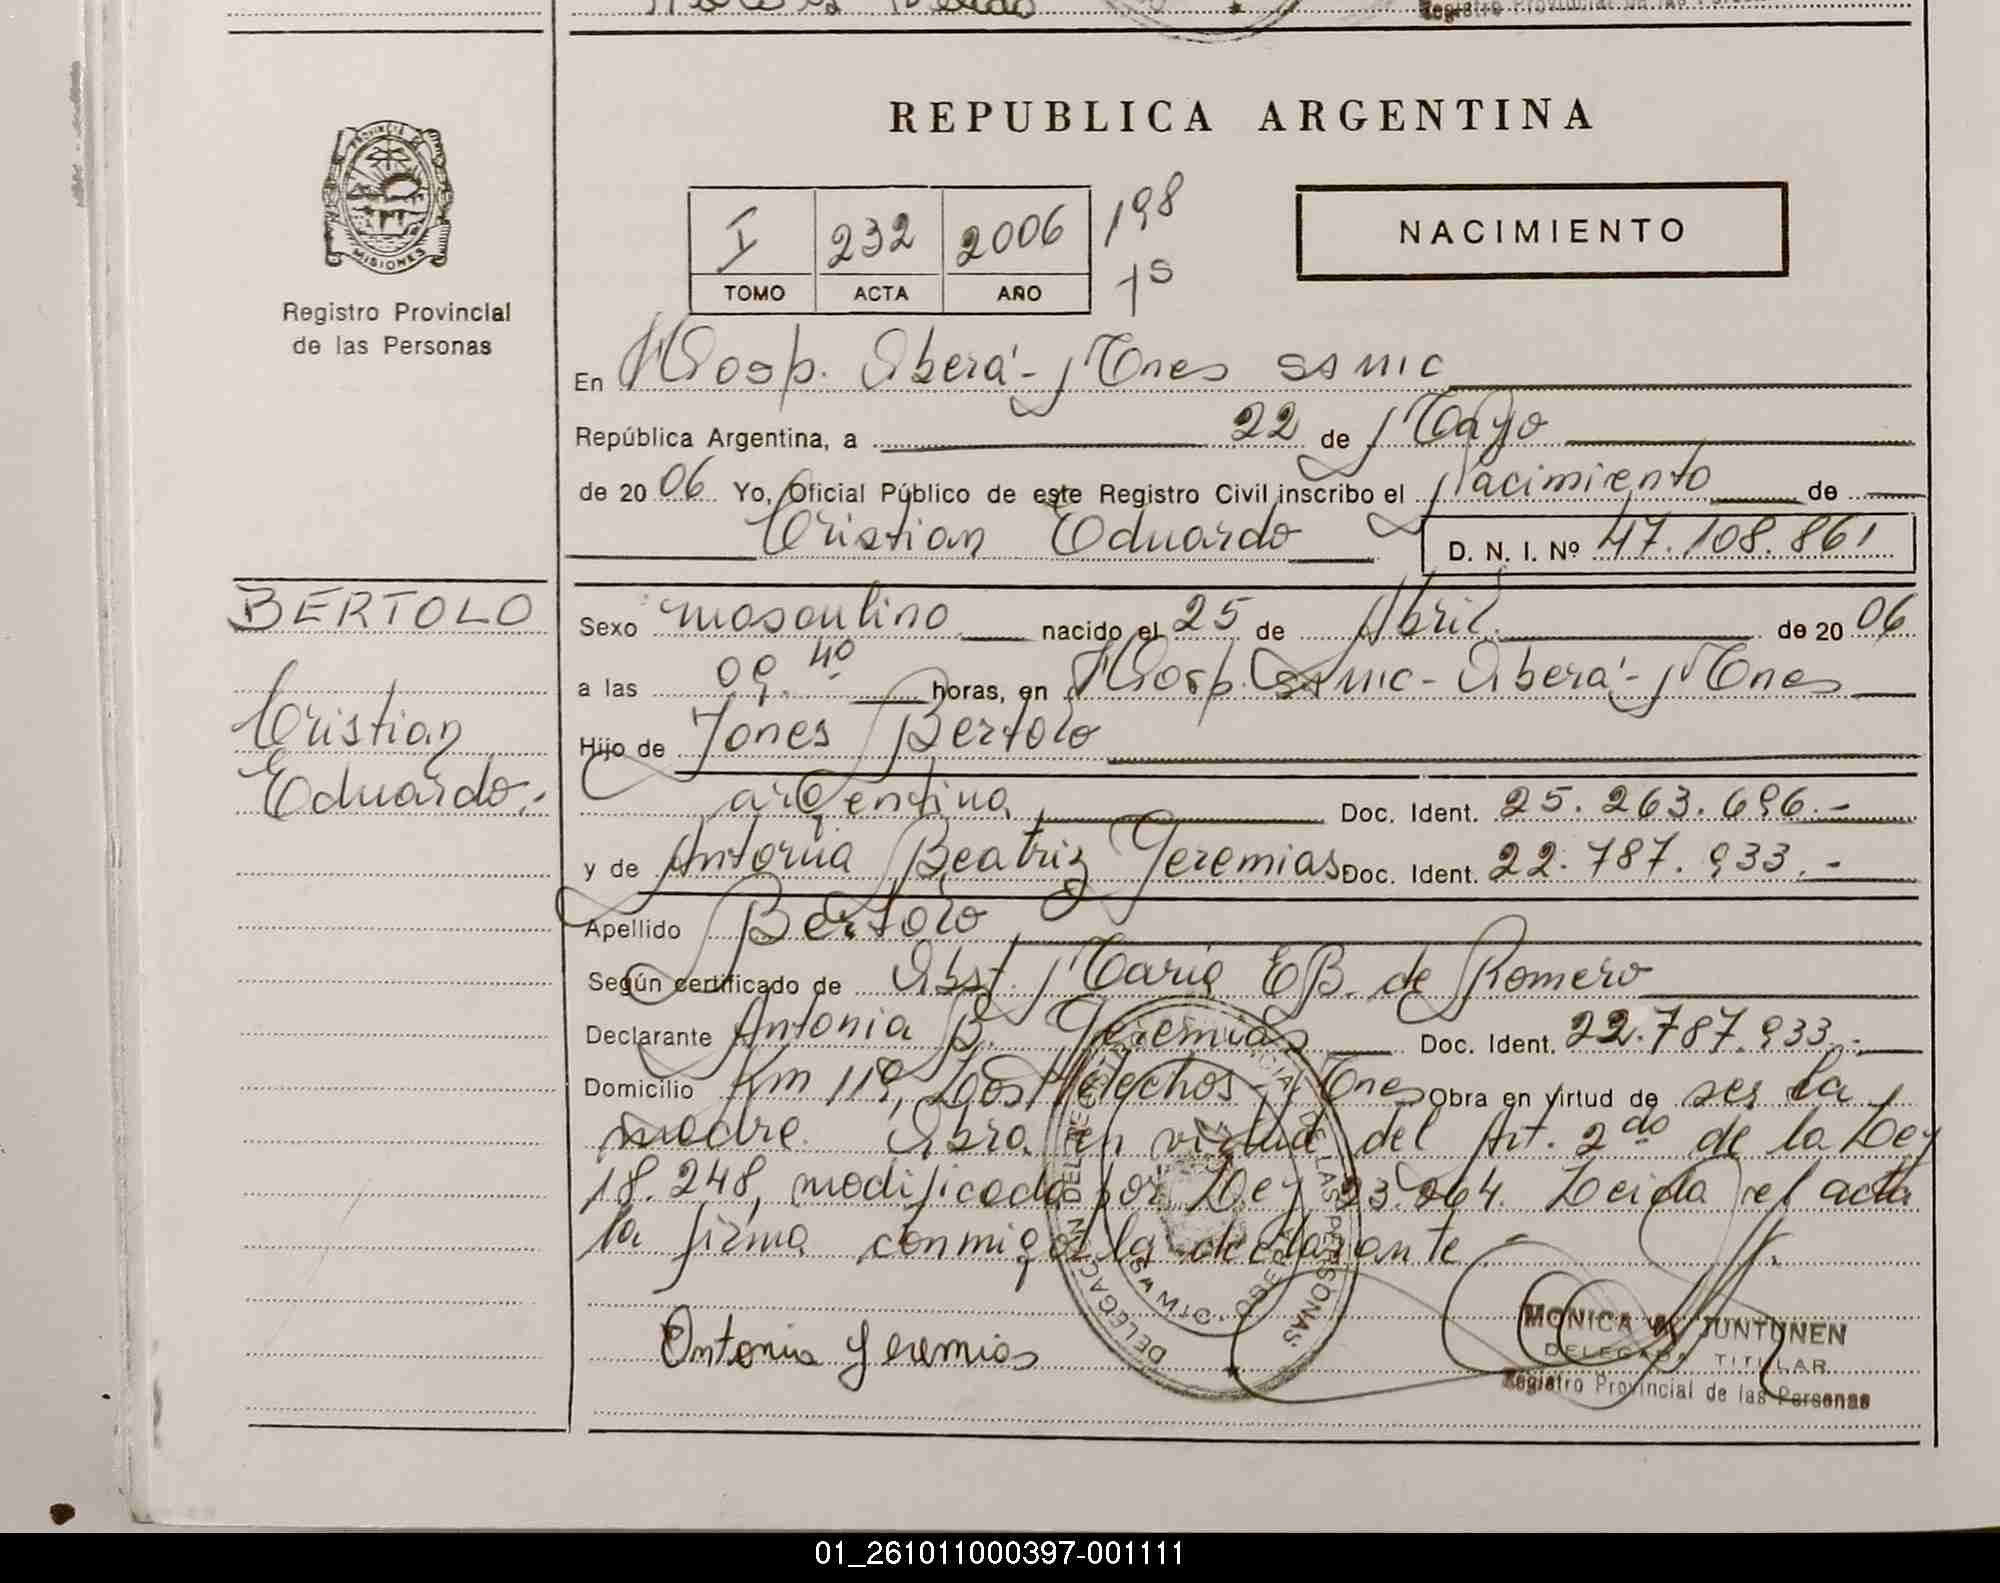 Registro Provincial de las Personas
REPUBLICA ARGENTINA
PROVINCIA DE
MISIONES
Registro Provincial
de las Personas
I 232 2006 198
TOMO ACTA AÑO 1S
NACIMIENTO
En Hosp. Oberá - Mnes SSMIC
República Argentina, a 22 de Mayo
de 20 06 Yo, Oficial Público de este Registro Civil inscribo el Nacimiento de
Cristian Eduardo D. N. I. Nº 47.108.861
BERTOLO
Cristian
Eduardo.-
Sexo masculino nacido el 25 de Abril. de 20 06
a las 09.40 horas, en Hosp. SSMIC - Oberá - Mnes
Hijo de Jones Bertolo
argentina Doc. Ident. 25.263.696.-
y de Antonia Beatriz Jeremias Doc. Ident. 22.787.933.-
Apellido Bertolo
Según certificado de Obst. Maria E B. de Romero
Declarante Antonia B. Jeremias Doc. Ident. 22.787.933.-
Domicilio Km 119, Los Helechos - Mnes Obra en virtud de ser la
madre. Obra en virtud del Art. 2do de la Ley
18.248, modificada por Ley 23.264. Leida el acta
la firma conmigo la declarante.-
DELEGACIÓN DEL REGISTRO PROVINCIAL DE LAS PERSONAS
OBERA
Antonia Jeremias
MONICA JUNTUNEN
DELEGADA TITULAR
Registro Provincial de las Personas
01_261011000397-001111